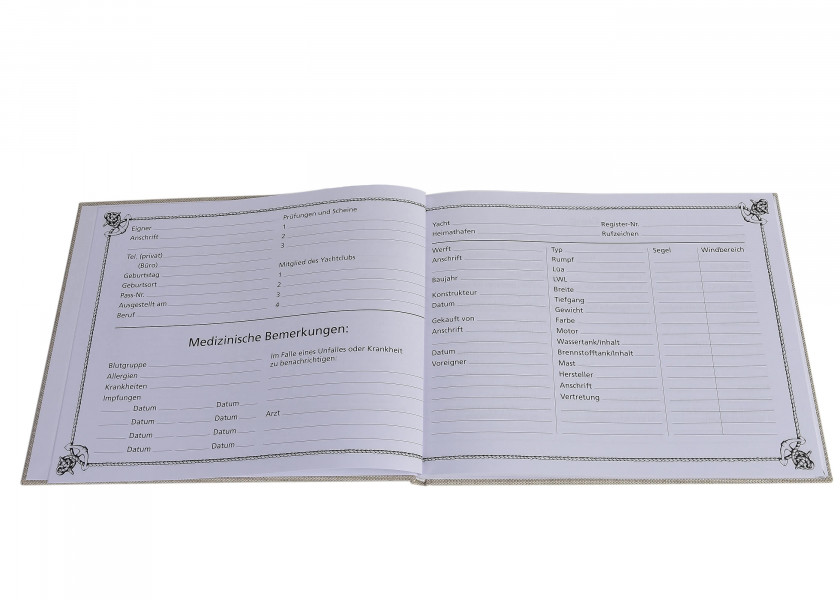 Eigner
Anschrift
Tel. (privat)
(Büro)
Geburtstag
Geburtsort
Pass-Nr.
Ausgestellt am
Beruf
Prüfungen und Scheine
1
2
3
Mitglied des Yachtclubs
1
2
3
4
Medizinische Bemerkungen:
Blutgruppe
Allergien
Krankheiten
Impfungen
Datum Datum
Datum Datum
Datum Datum
Datum Datum
Im Falle eines Unfalles oder Krankheit
zu benachrichtigen:
Arzt
Yacht Register-Nr.
Heimathafen Rufzeichen
Werft
Anschrift
Baujahr
Konstrukteur
Datum
Gekauft von
Anschrift
Datum
Voreigner
Typ
Rumpf
Lüa
LWL
Breite
Tiefgang
Gewicht
Farbe
Motor
Wassertank/Inhalt
Brennstofftank/Inhalt
Mast
Hersteller
Anschrift
Vertretung
Segel Windbereich